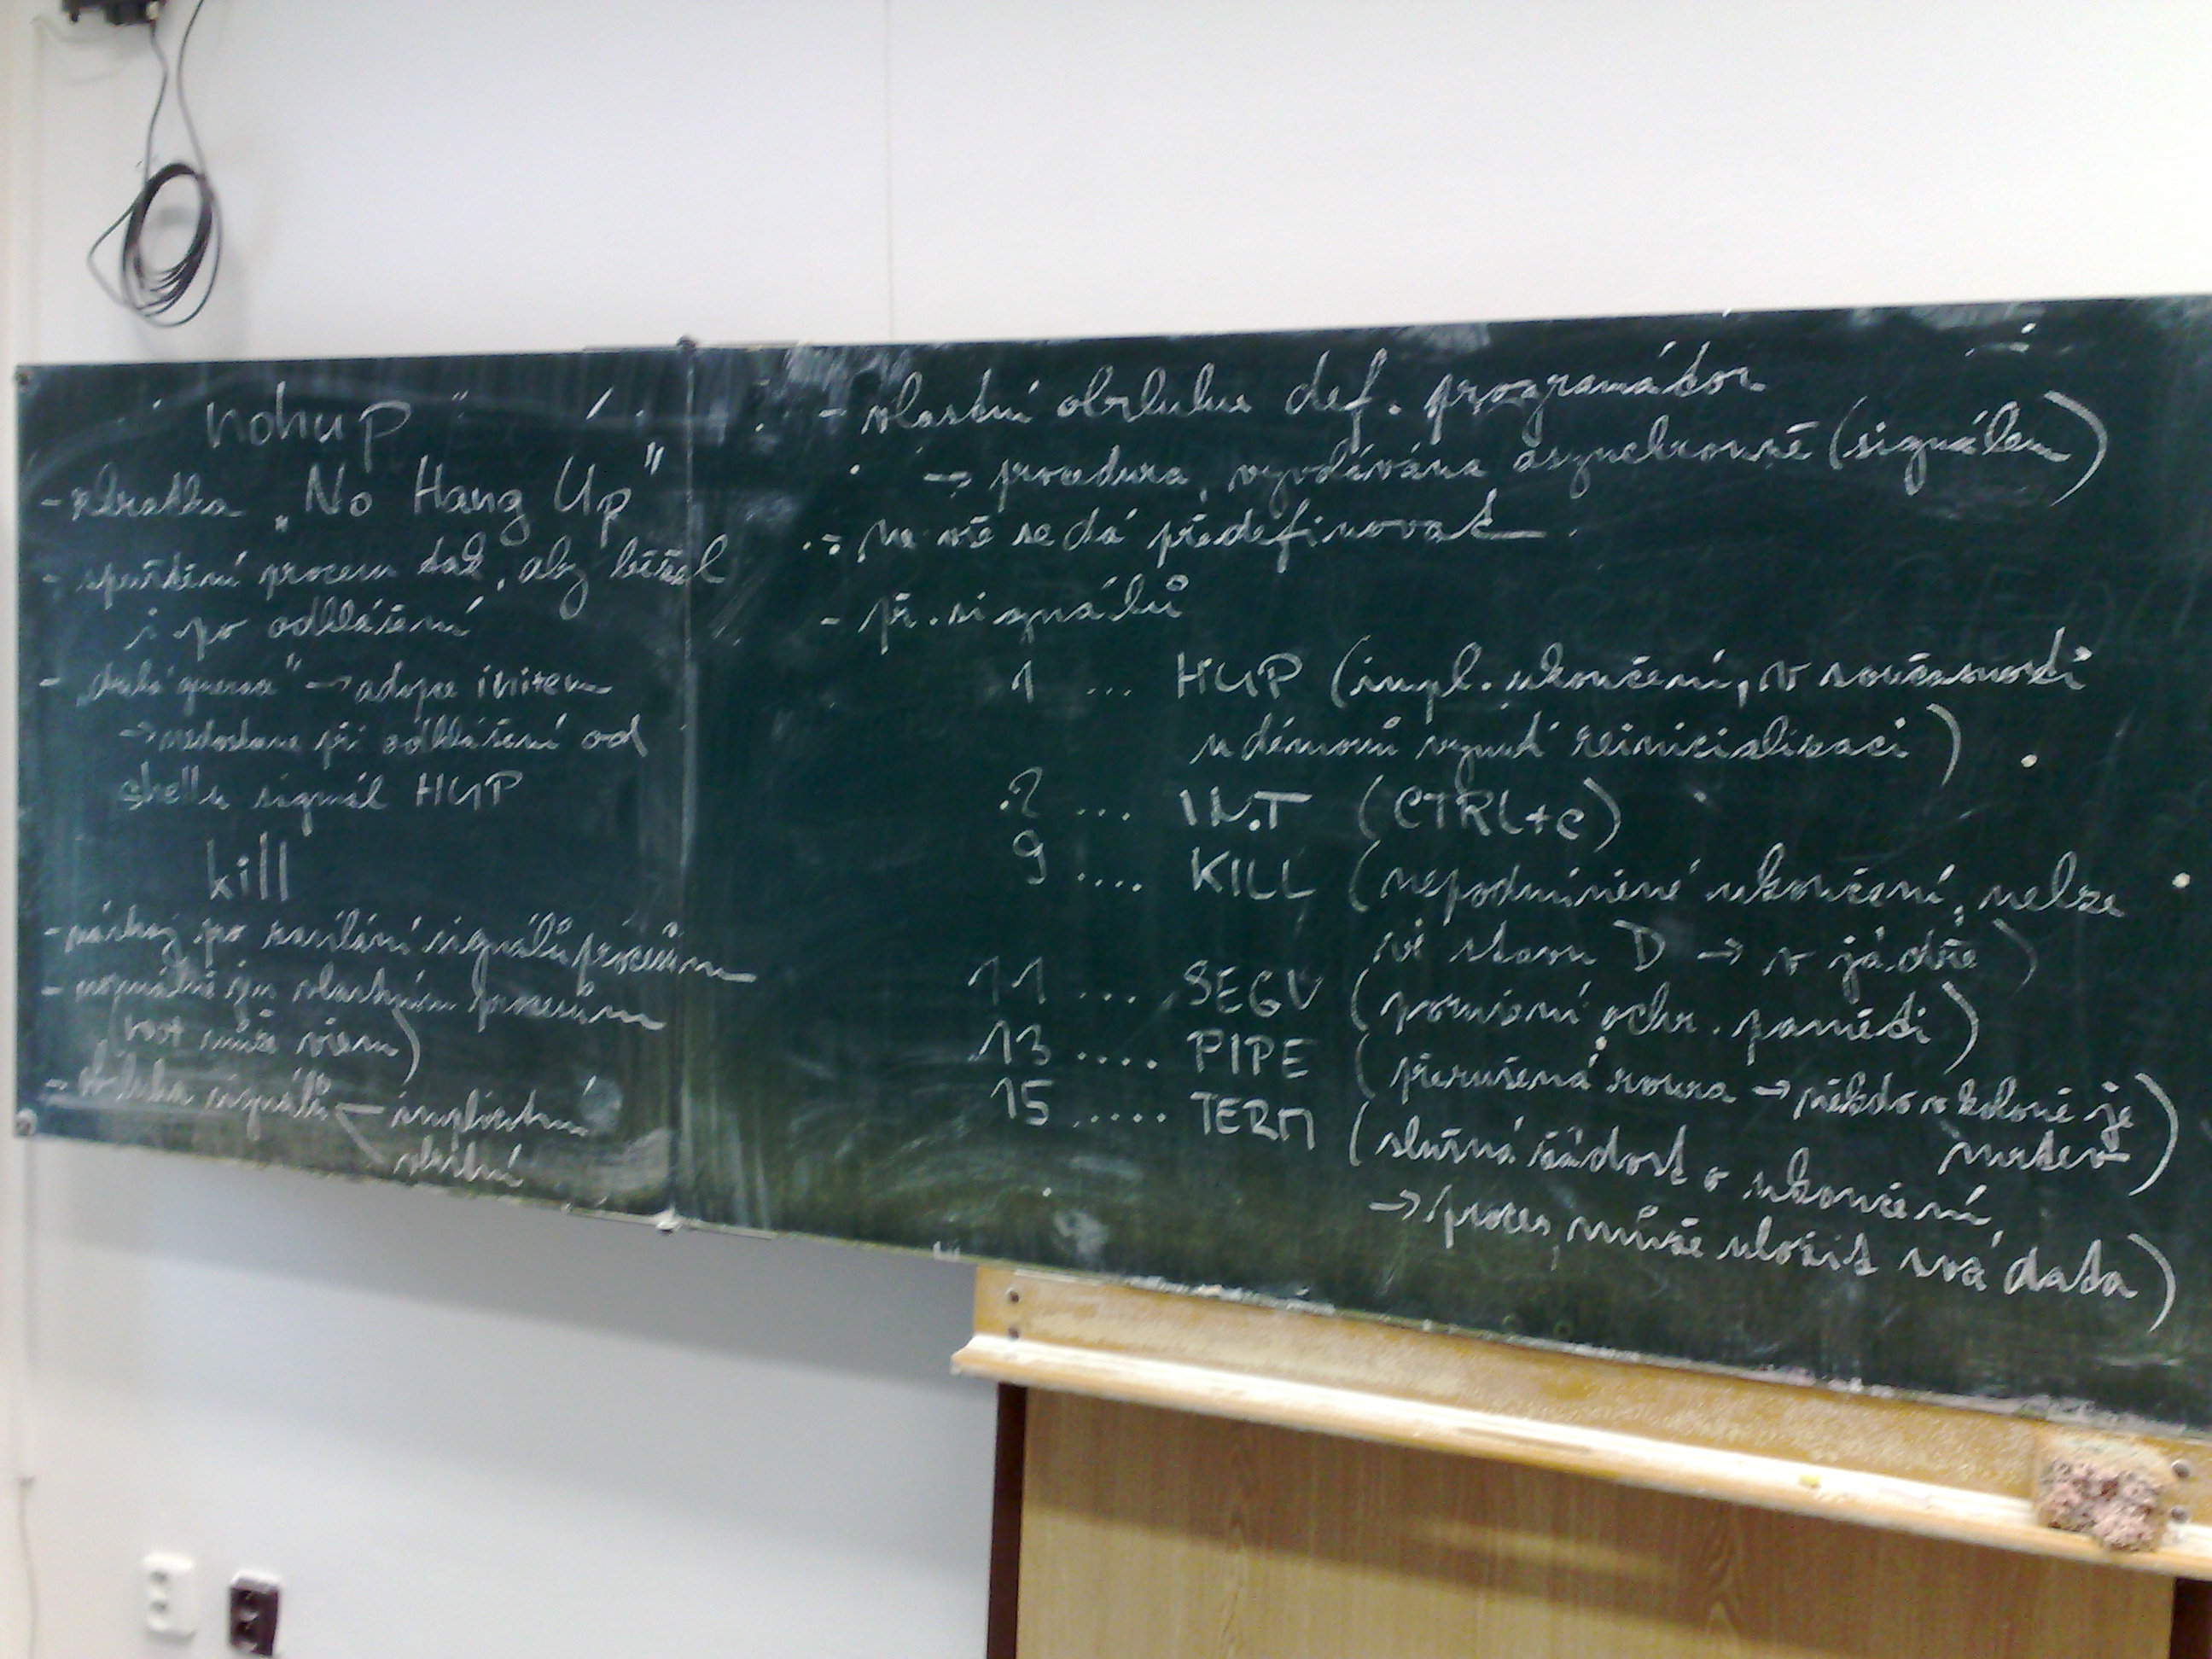 nohup
- zkratka „No Hang Up"
- spuštění procesu tak, aby běžel
i po odhlášení
- → adopce initem
→ nedostane při odhlášení od
shellu signál HUP
kill
- nástroj po zasílání signálů procesům
- normálně jen vlastním procesům
(root může všem)
- obsluha signálů
implicitní
vlastní
- vlastní obsluhu def. programátor
→ procedura, vyvolávána asynchronně (signálem)
- ne vše se dá předefinovat
- př. signálů
1 ... HUP (impl. ukončení, v současnosti
u démonů vynutí reinicialisaci)
2 ... INT (CTRL+C)
9 .... KILL (nepodmíněné ukončení, nelze
ve stavu D → v jádře)
11 ... SEGV (porušení ochr. paměti)
13 .... PIPE (přerušená roura → někdo v koloně je
mrtev)
15 ..... TERM (slušná žádost o ukončení,
→ proces, může uložit svá data)